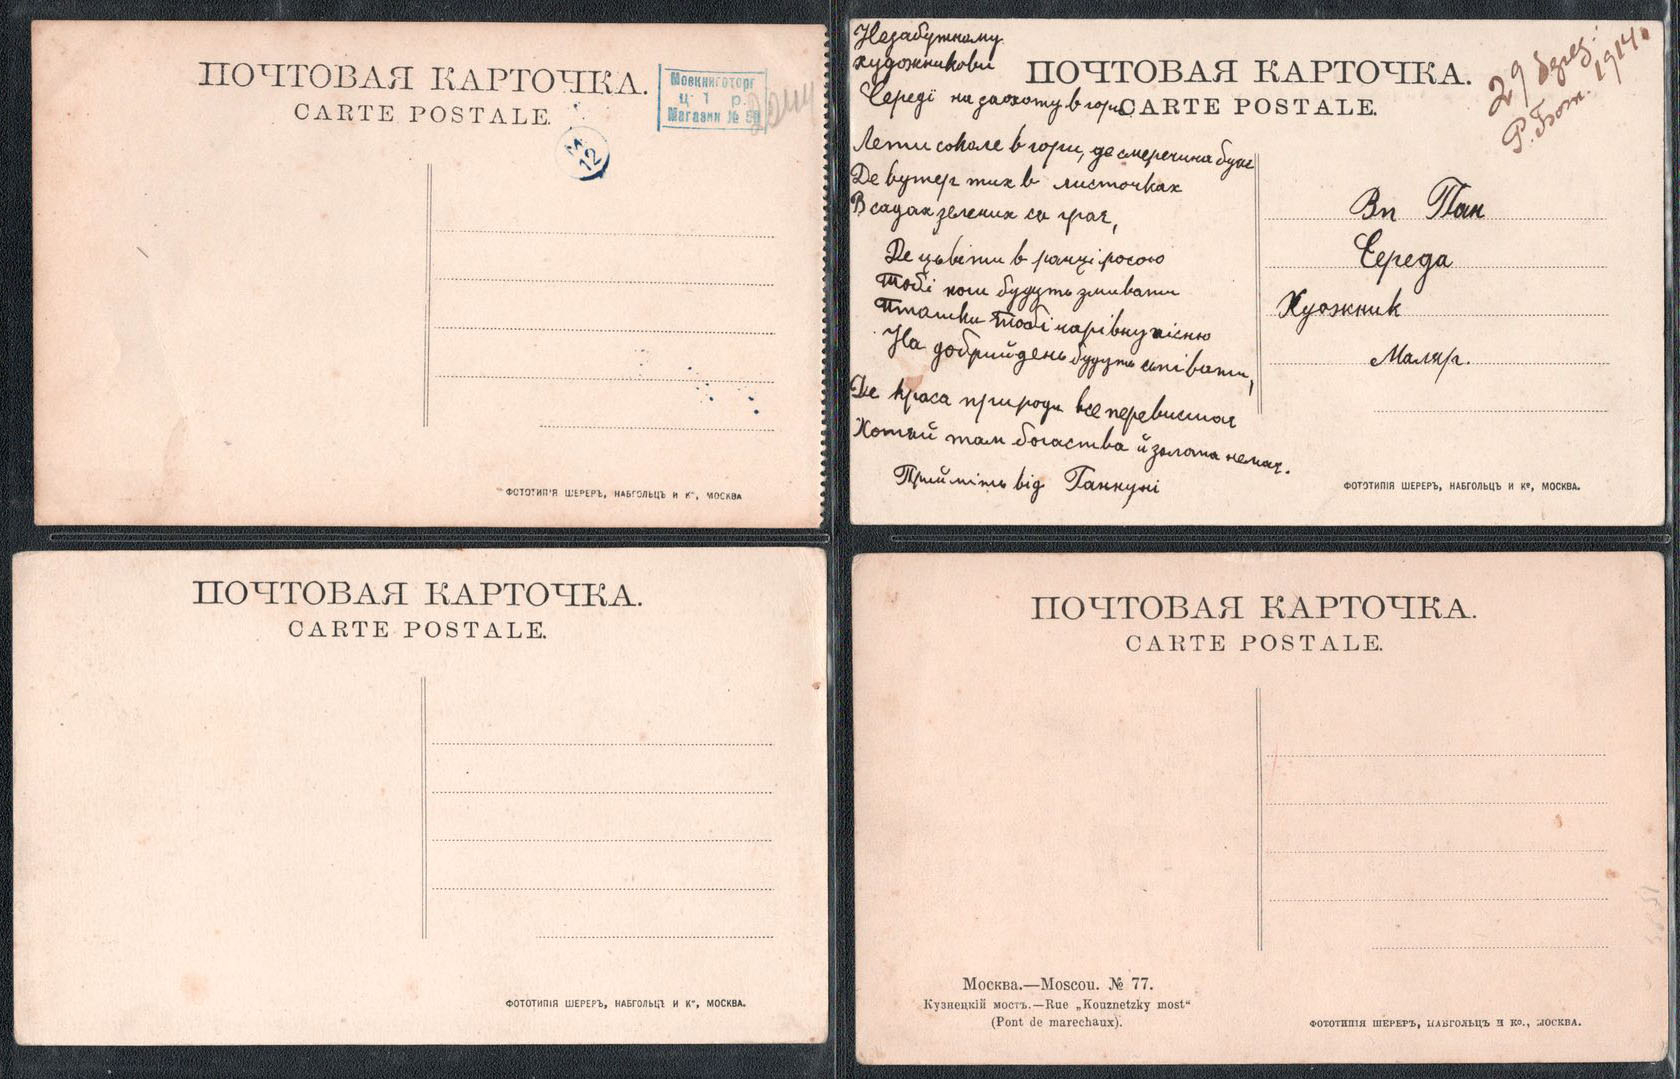 ПОЧТОВАЯ КАРТОЧКА.
CARTE POSTALE.
Москниготорг
Магазин №
12
ФОТОТИПІЯ ШЕРЕРЪ, НАБГОЛЬЦЪ И Кº, МОСКВА
Незабутному
художникови
Середі на заохоту в гори
ПОЧТОВАЯ КАРТОЧКА.
CARTE POSTALE.
29
1914
Лети соколе в гори, де смеречина буяє
Де вутер тих в листочках
В садах зелених ся грає,
Де цьвіти в ранці росою
Тобі ноги будуть змивати
Пташки Тобі чарівну пісню
На добрийдень будуть співати,
Де краса природи все перевисшає
Хотяй там богаства й золота немає.
Прийміть від Ганкуні
Вп Пан
Середа
Хужник
Маляр.
ФОТОТИПІЯ ШЕРЕРЪ, НАБГОЛЬЦЪ И Кº, МОСКВА.
ПОЧТОВАЯ КАРТОЧКА.
CARTE POSTALE.
ФОТОТИПІЯ ШЕРЕРЪ, НАБГОЛЬЦЪ И Кº, МОСКВА.
ПОЧТОВАЯ КАРТОЧКА.
CARTE POSTALE.
Москва.—Moscou. № 77.
Кузнецкій мостъ.—Rue „Kouznetzky most“
(Pont de marechaux).
ФОТОТИПІЯ ШЕРЕРЪ, НАБГОЛЬЦЪ И Кº., МОСКВА.